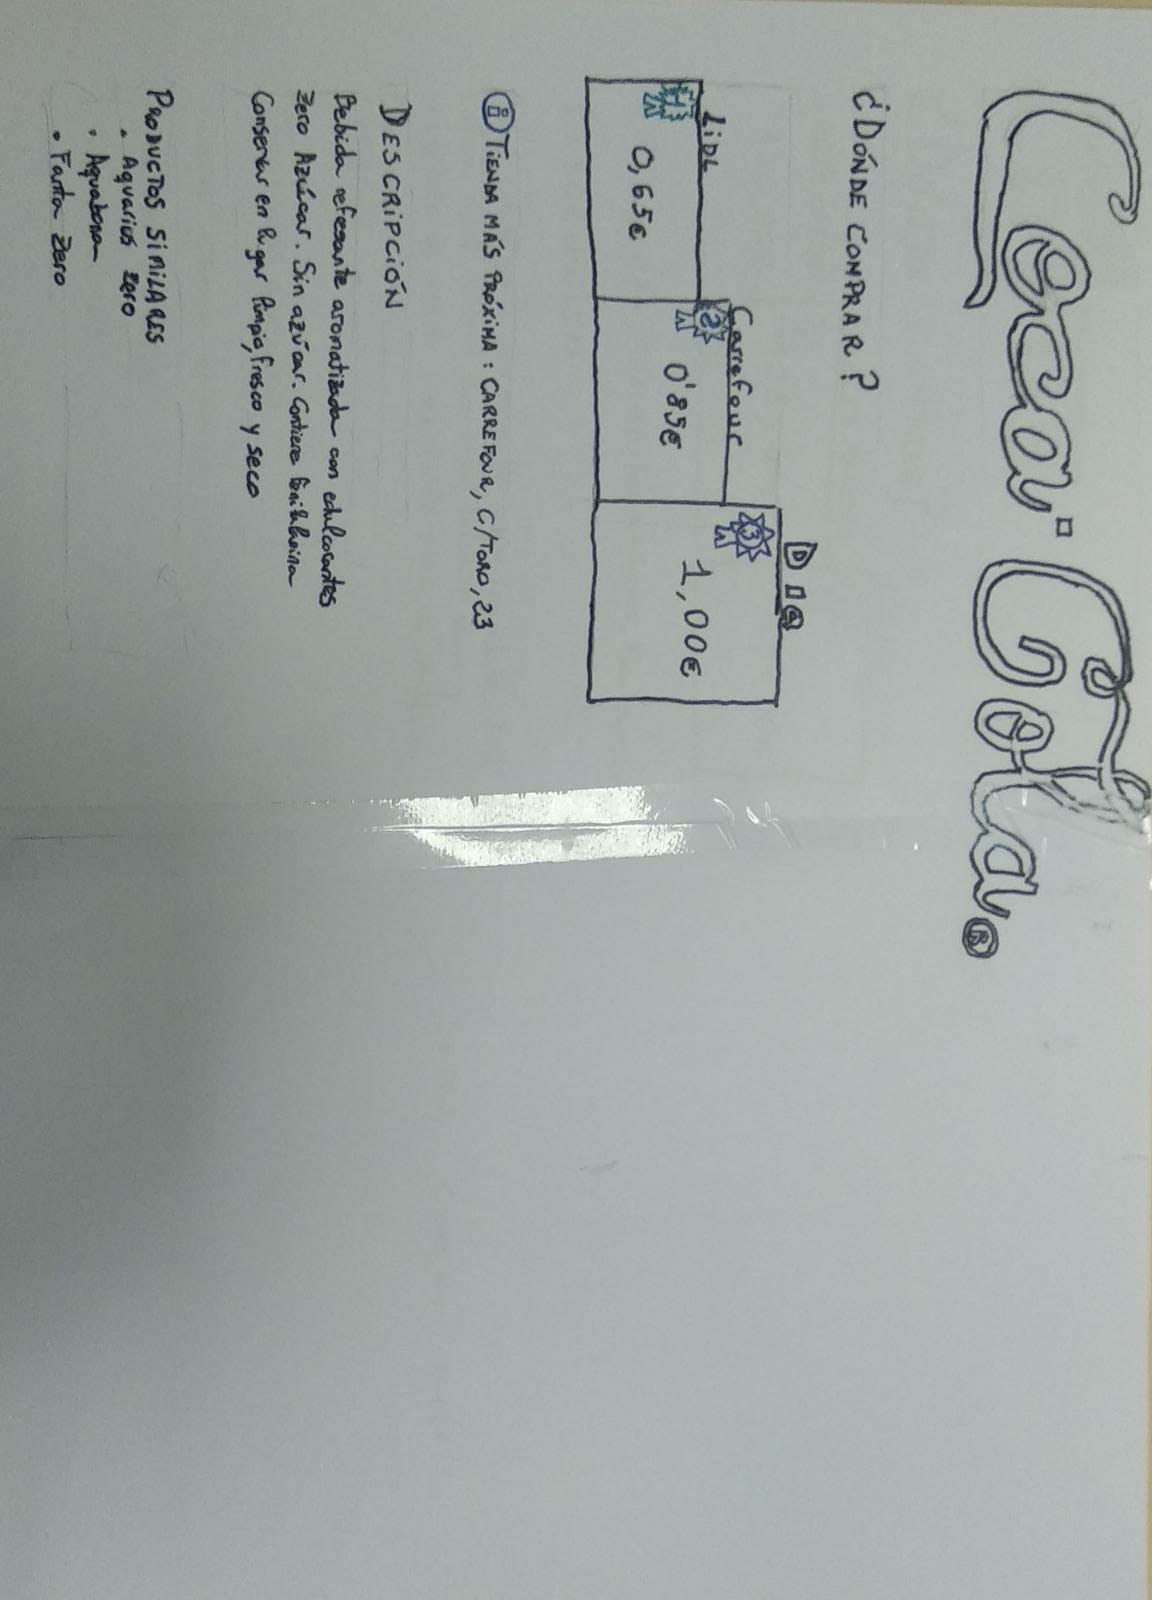 Coca-Cola®
¿DÓNDE COMPRAR?
LiDL
Carrefour
Dia
2
3
0,65€
0'85€
1,00€
i TIENDA MÁS PRÓXIMA: CARREFOUR, C/TORO, 23
DESCRIPCIÓN
Bebida refescante aromatizada con edulcorantes
Zero Azúcar. Sin azúcar. Contiene
Conservar en lugar limpio, fresco y seco
PRODUCTOS SIMILARES
• Aquarius zero
• Aquabona
• Fanta Zero